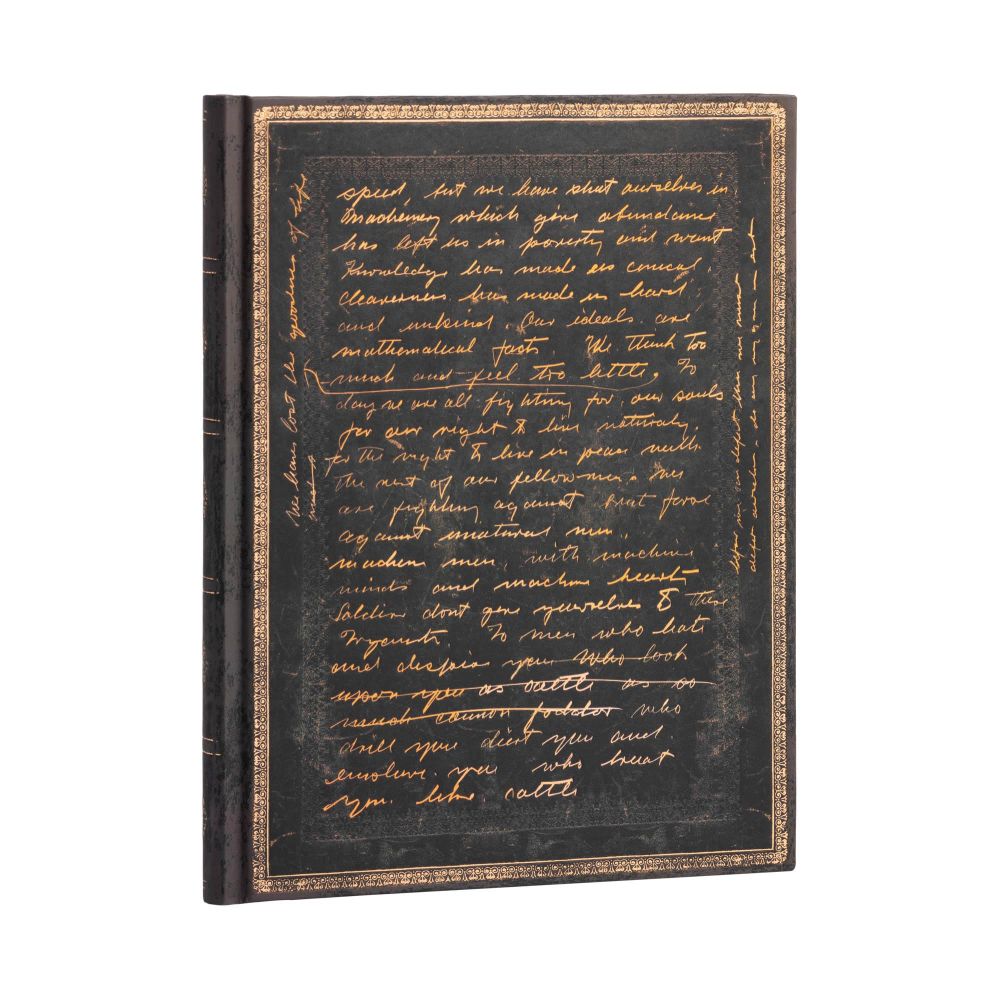 speed, but we have shut ourselves in
Machinery which give abundance
has left us in poverty and want
Knowledge has made us cinical,
cleaverness has made us hard,
and unkind. Our ideals are
mathematical facts. We think too
much and feel too little. To
day we are all fighting for our souls
for our right to live naturaly,
for the right to live in peace with
the rest of our fellow men.
are fighting against brut force
against unatural men,
machen men, with machine
minds and machine hearts
Soldiers dont give yourselves to these
To men who hate
and despise you who look
upon you as cattle as so
much cannon fodder who
drill you diert you and
enslave you who treat
you like cattle
We have lost the of life